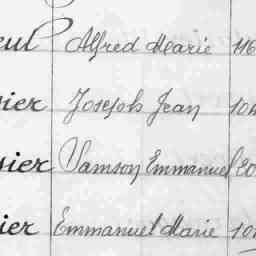 eul Alfred Marie 116
sier Joseph Jean 10
sier Samson Emmanuel 20
ier Emmanuel Marie 10